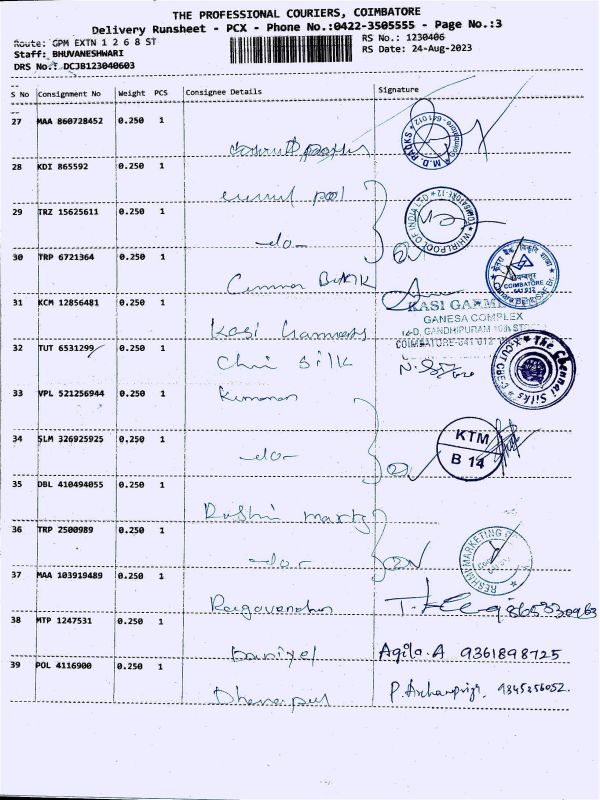 THE PROFESSIONAL COURIERS, COIMBATORE
Delivery Runsheet - PCX - Phone No.:0422-3505555 - Page No.:3
Route: GPM EXTN 1 2 6 8 ST
RS No.: 1230406
Staff: BHUVANESHWARI
RS Date: 24-Aug-2023
DRS No.: DCJB123040603
S No Consignment No Weight PCS Consignee Details Signature
27 MAA 860728452 0.250 1
M.D. PADKS Coimbatore-641 012
28 KDI 865592 0.250 1
WHIRLPOOL OF INDIA LTD COIMBATORE-12
29 TRZ 15625611 0.250 1 -do-
30 TRP 6721364 0.250 1
COIMBATORE
641 012
31 KCM 12856481 0.250 1 Kasi Garments
KASI GARMENTS
GANESA COMPLEX
12-D, GANDHIPURAM 10th ST
COIMBATORE-641 012
32 TUT 6531299 0.250 1 Chennai Silk
The Chennai Silks
33 VPL 521256944 0.250 1 Kumaran
34 SLM 326925925 0.250 1 -do-
KTM
B 14
35 DBL 410494055 0.250 1
36 TRP 2500989 0.250 1 -do-
RESHMI MARKETING
37 MAA 103919489 0.250 1 Ragavendra
38 MTP 1247531 0.250 1 Daniyel Aqila.A 9361898725
39 POL 4116900 0.250 1 Dhanapul 9845256052.